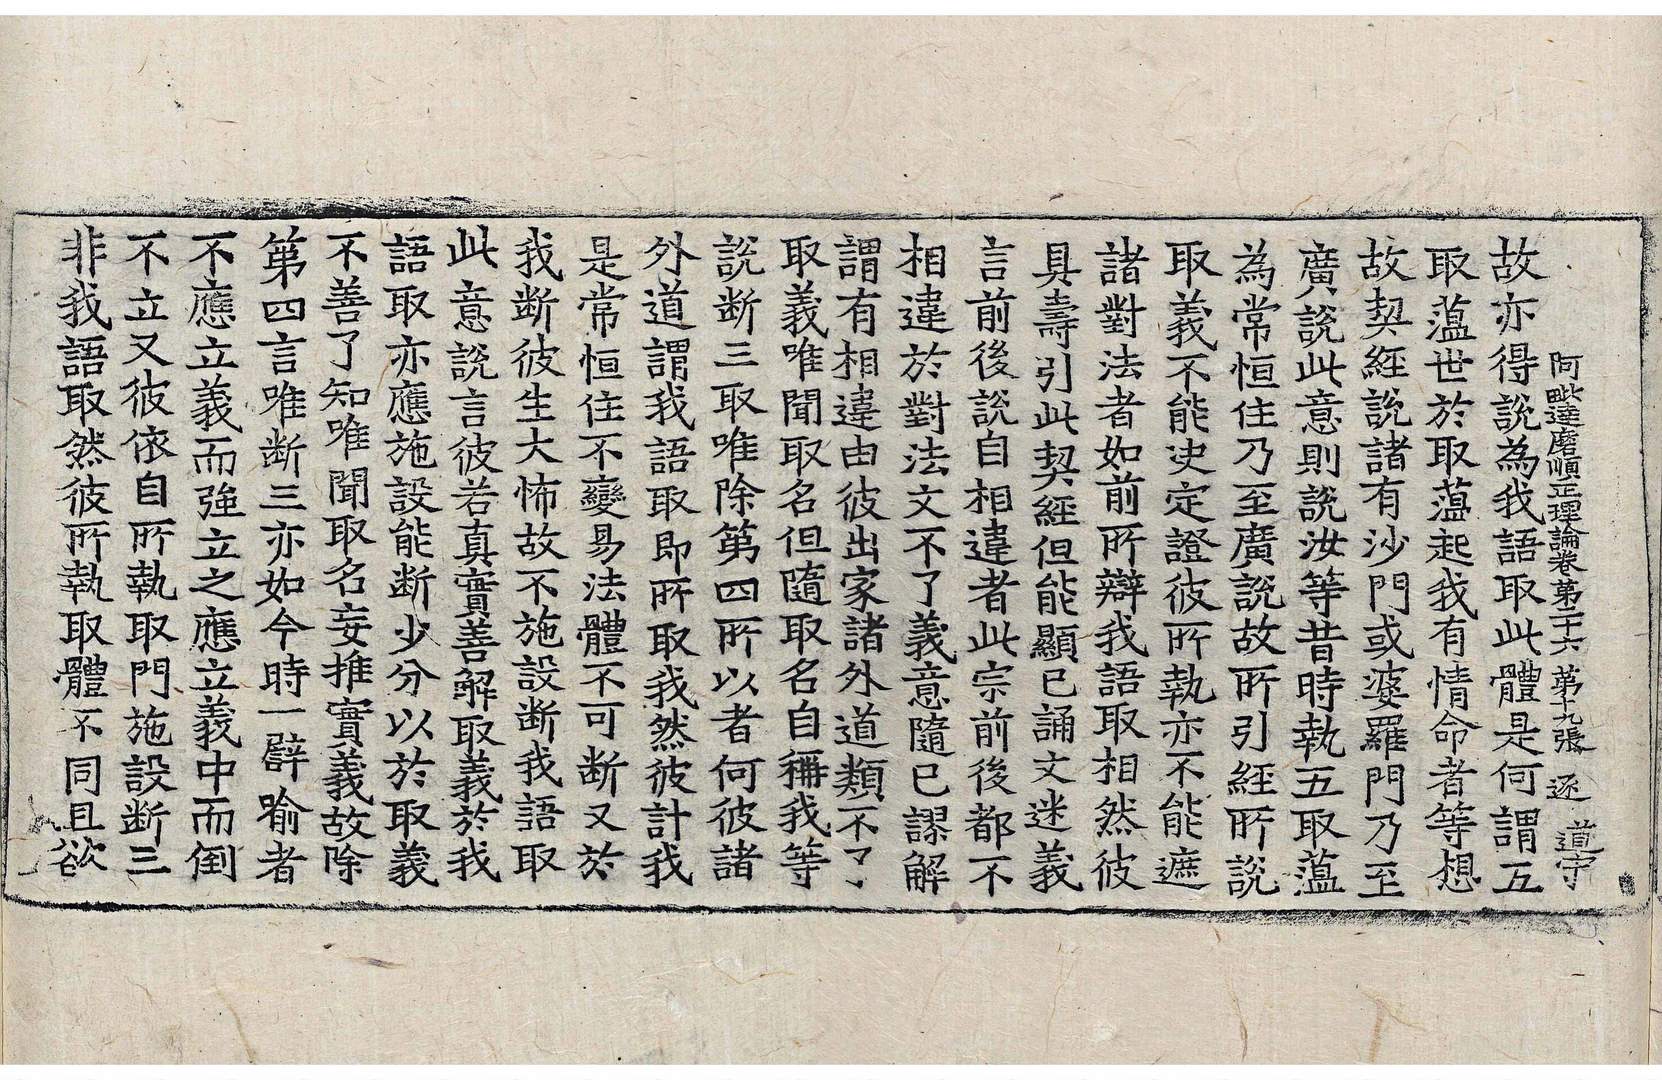 阿毗達磨順正理論卷第二十六 第十九張 逐 道守
故亦得說為我語取此體是何謂五
取蕰世於取蕰起我有情命者等想
故契經說諸有沙門或婆羅門乃至
廣說此意則說汝等昔時執五取蕰
為常恒住乃至廣說故所引經所說
取義不能決定證彼所執亦不能遮
諸對法者如前所辯我語取相然彼
具壽引此契經但能顯已誦文迷義
言前後說自相違者此宗前後都不
相違於對法文不了義意隨已謬解
謂有相違由彼出家諸外道類不了
取義唯聞取名但隨取名自稱我等
說断三取唯除第四所以者何彼諸
外道謂我語取即所取我然彼計我
是常恒住不變易法體不可断又於
我断彼生大怖故不施設断我語取
此意說言彼若真實善解取義於我
語取亦應施設能断少分以於取義
不善了知唯聞取名妄推實義故除
第四言唯断三亦如今時一譬喻者
不應立義而強立之應立義中而倒
不立又彼依自所執取門施設断三
非我語取然彼所執取體不同且欲